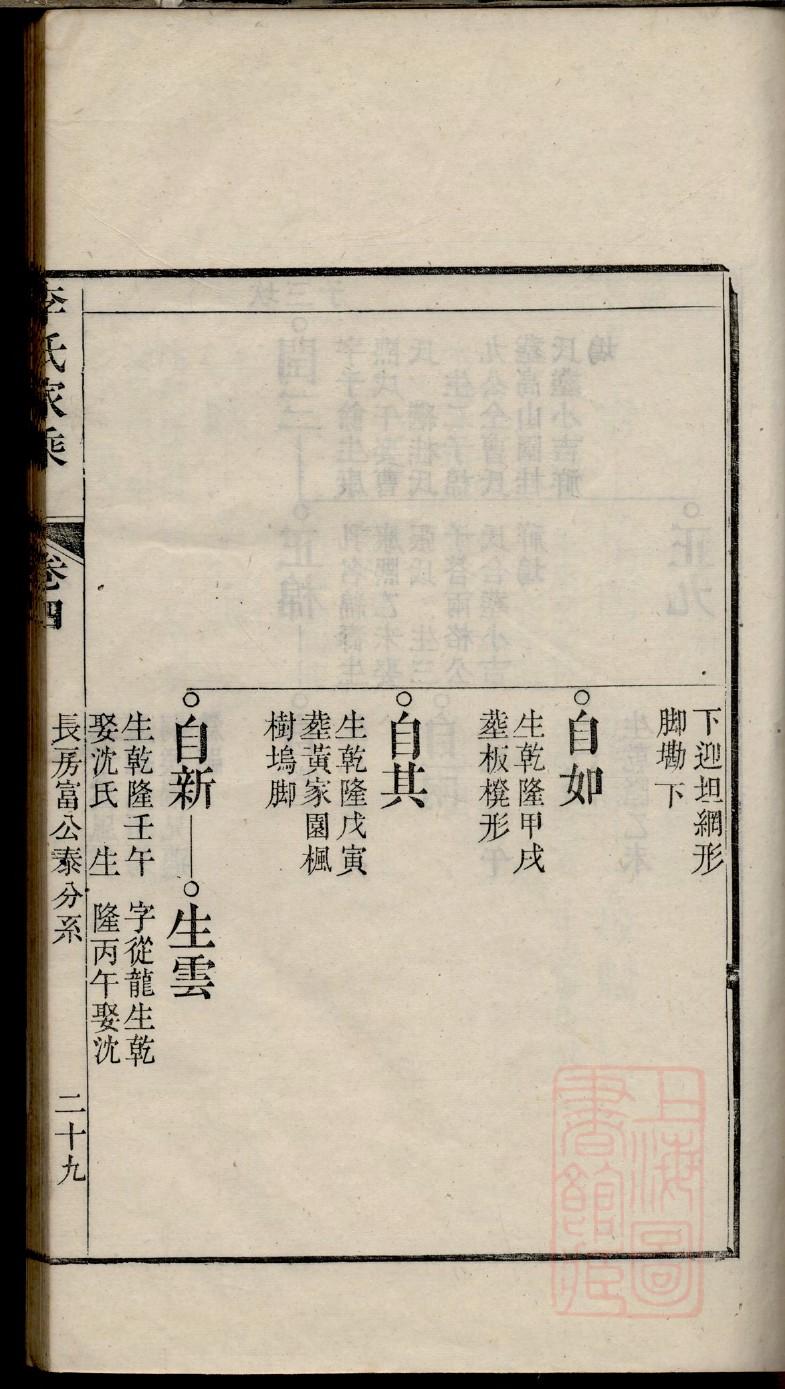 下迎坦綱形
脚墈下
自如
生乾隆甲戌
塟板櫈形
自其
生乾隆戊寅
塟黃家園楓
樹塢脚
自新
生乾隆壬午
娶沈氏 生
生雲
字從龍生乾
隆丙午娶沈
李氏家乘
卷四
長房富公泰分系
二十九
上海圖書館藏